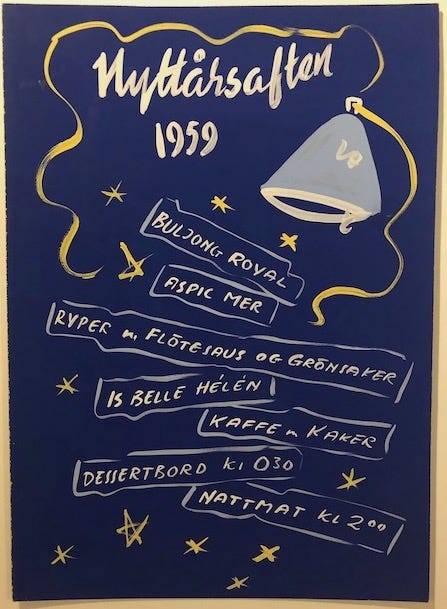 Nyttårsaften
1959
BULJONG ROYAL
ASPIC MER
RYPER m, FLÖTESAUS OG GRÖNSAKER
IS BELLE HÉLÉN
KAFFE m KAKER
DESSERTBORD KL 030
NATTMAT KL 2⁰⁰